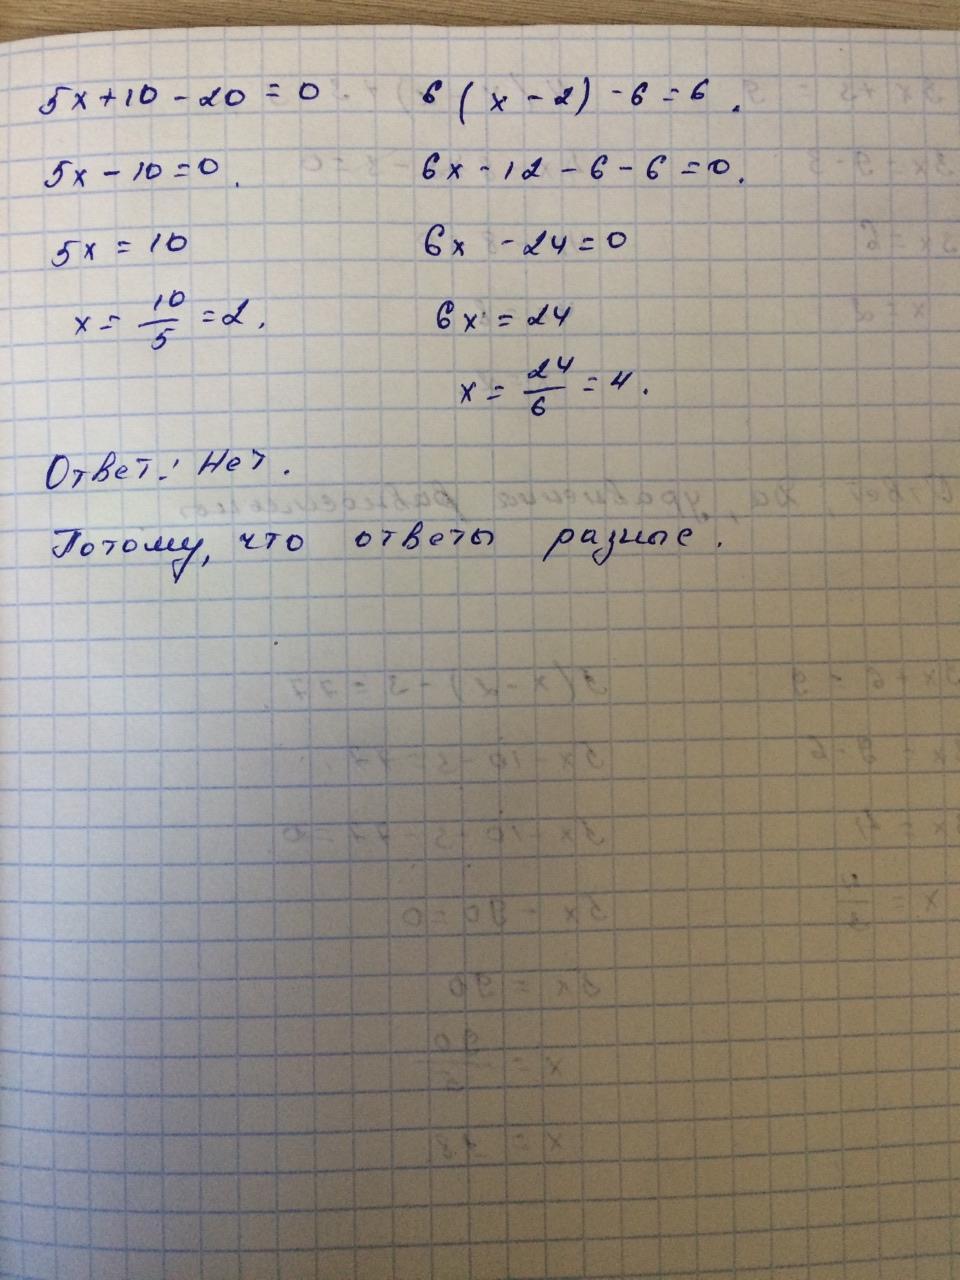 5x+10-20=0
5x-10=0.
5x=10
x=10/5=2.
6(x-2)-6=6.
6x-12-6-6=0.
6x-24=0
6x=24
x=24/6=4.
Ответ: Нет.
Потому, что ответы разные.